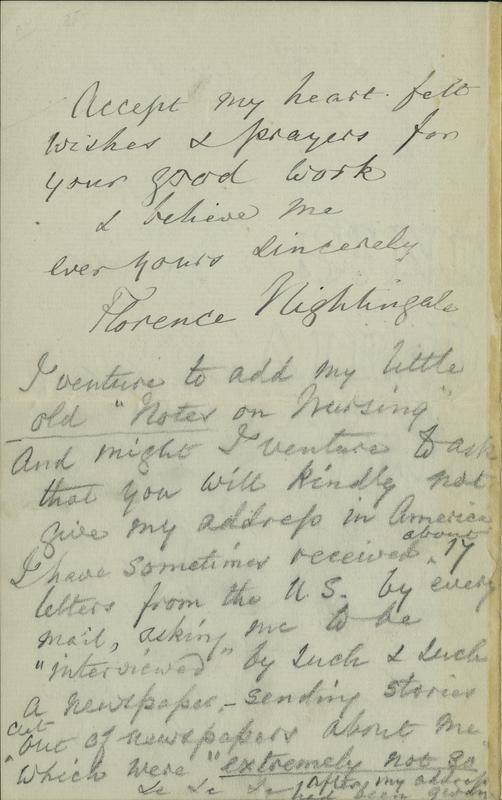 Accept my heart-felt
wishes & prayers for
your good work
& believe me
ever yours sincerely
Florence Nightingale
I venture to add my little
old "Notes on Nursing"
And might I venture to ask
that you will kindly not
give my address in America
I have sometimes received about 17
letters from the U.S. by every
mail, asking me to be
"interviewed" by such & such
a newspaper,- sending stories
cut out of newspapers about me
which were "extremely not so"
after my address
had been given